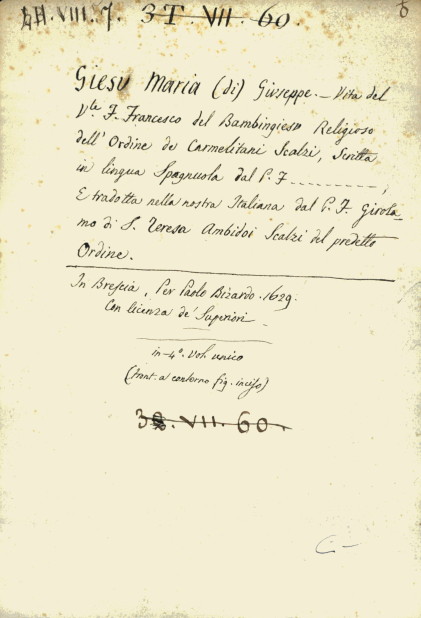 LH. VIII. 7. 3T. VII. 60.
Giesu Maria (di) Giuseppe. - Vita del
V.le F. Francesco del Bambingiesu Religioso
dell'Ordine de Carmelitani Scalzi, Scritta
in lingua Spagnuola dal P. F ----------,
E tradotta nella nostra Italiana dal P. F. Girola-
mo di S. Teresa Ambidoi Scalzi del predetto
Ordine.
In Brescia, Per Paolo Bizardo. 1629.
Con licenza de' Superiori
in-4°. Vol. unico
(front. a contorno fig. inciso)
VII. 60.